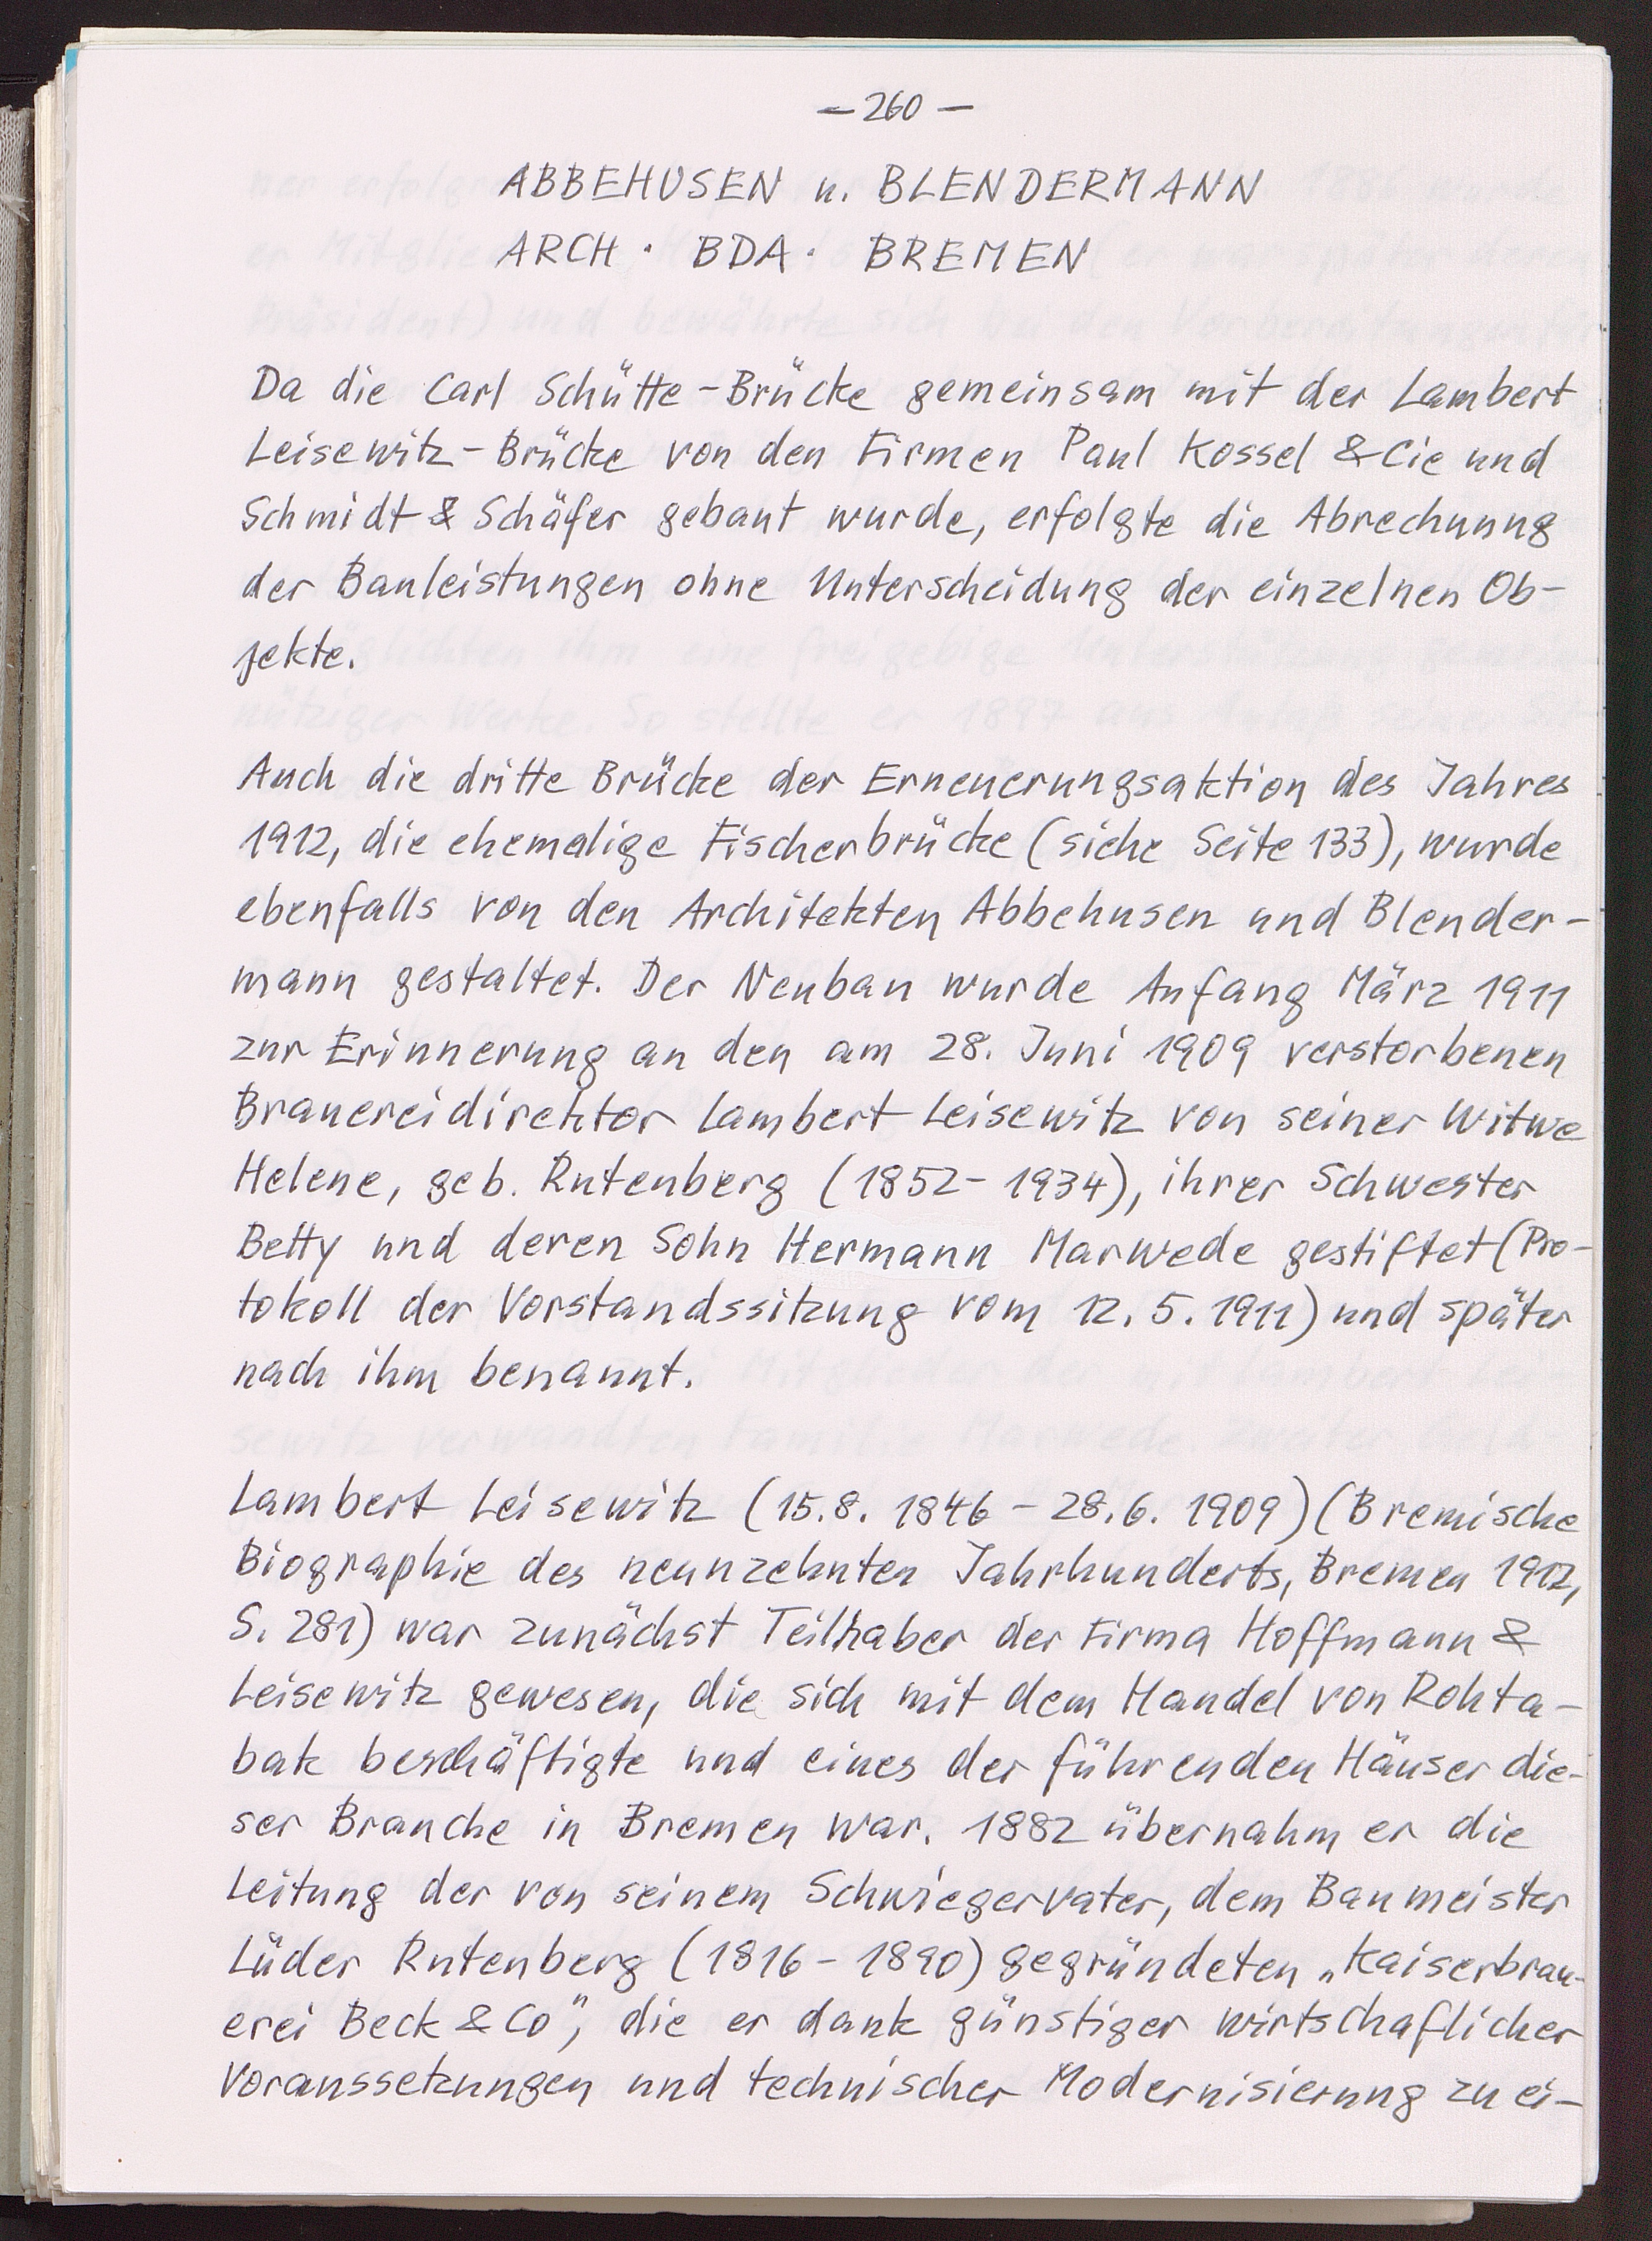 — 260 —
ABBEHUSEN u. BLENDERMANN
ARCH · BDA · BREMEN
Da die Carl Schütte-Brücke gemeinsam mit der Lambert
Leisewitz-Brücke von den Firmen Paul Kossel & Cie und
Schmidt & Schäfer gebaut wurde, erfolgte die Abrechnung
der Bauleistungen ohne Unterscheidung der einzelnen Ob-
jekte.
Auch die dritte Brücke der Erneuerungsaktion des Jahres
1912, die ehemalige Fischerbrücke (siehe Seite 133), wurde
ebenfalls von den Architekten Abbehusen und Blender-
mann gestaltet. Der Neubau wurde Anfang März 1911
zur Erinnerung an den am 28. Juni 1909 verstorbenen
Brauereidirektor Lambert Leisewitz von seiner Witwe
Helene, geb. Rutenberg (1852-1934), ihrer Schwester
Betty und deren Sohn Hermann Marwede gestiftet (Pro-
tokoll der Vorstandssitzung vom 12.5.1911) und später
nach ihm benannt.
Lambert Leisewitz (15.8. 1846 - 28.6. 1909) (Bremische
Biographie des neunzehnten Jahrhunderts, Bremen 1912,
S. 281) war zunächst Teilhaber der Firma Hoffmann &
Leisewitz gewesen, die sich mit dem Handel von Rohta-
bak beschäftigte und eines der führenden Häuser die-
ser Branche in Bremen war. 1882 übernahm er die
Leitung der von seinem Schwiegervater, dem Baumeister
Lüder Rutenberg (1816-1890) gegründeten „Kaiserbrau-
erei Beck & Co", die er dank günstiger wirtschaflicher
Voraussetzungen und technischer Modernisierung zu ei-